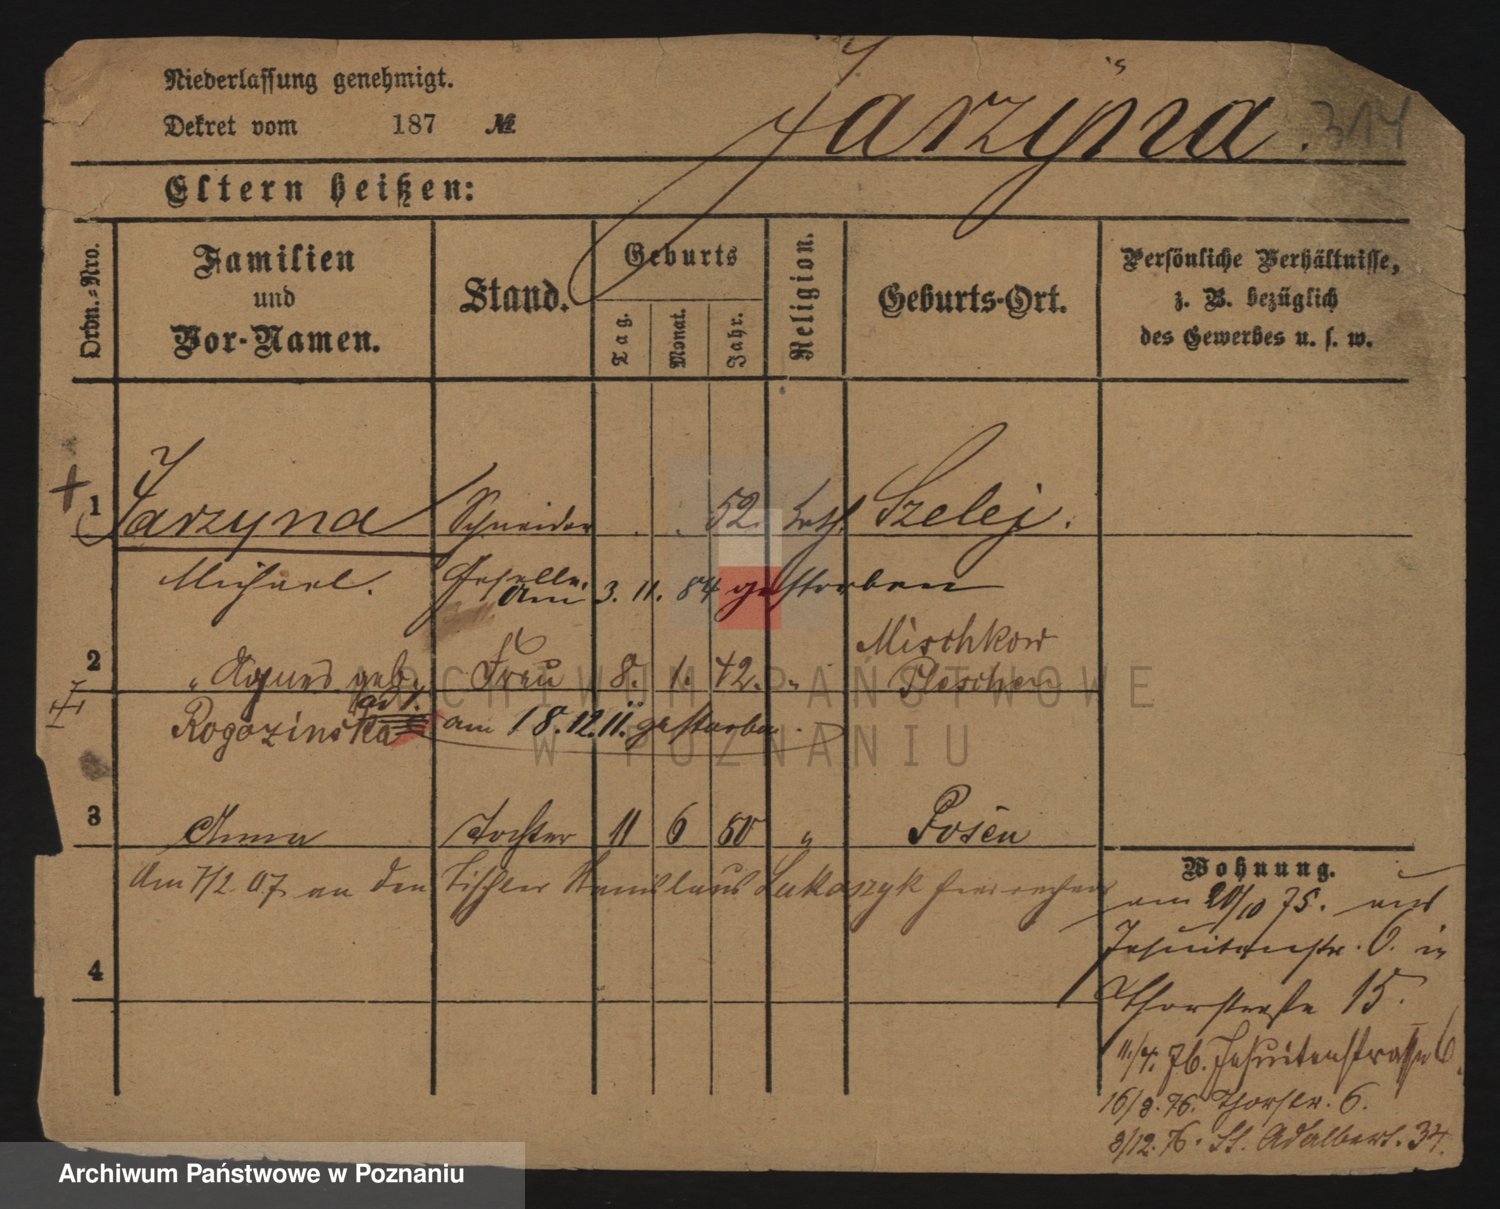 Niederlassung genehmigt.
Dekret vom 187 №
Jarzyna. 314
Eltern heißen:
Ordn.-Nro.
Familien
und
Vor-Namen.
Stand.
Geburts
Tag.
Monat.
Jahr.
Religion.
Geburts-Ort.
Persönliche Verhältnisse,
z. B. bezüglich
des Gewerbes u. s. w.
1 Jarzyna Schneider 52. kath. Szelej.
Michael. Geselle.
Am 3. 11. 84 gestorben
Mischkow
2 " Agnes geb. Frau 8. 1. 42. " Pleschen
Rogozinska am 18.12.11. gestorben.
3 Anna Tochter 11 6 80 " Posen
Am 7/2 07 an den Tischler Stanislaus Lukaszyk
4
Wohnung.
am 20/10 75. aus
Jesuitenstr. 6. in
Thorstraße 15.
11./4. 76. Jesuitenstrasse 6.
16/8. 76. Thorstr. 6.
3/12. 76. St. Adalbert. 34.
ARCHIWUM PAŃSTWOWE
W POZNANIU
Archiwum Państwowe w Poznaniu